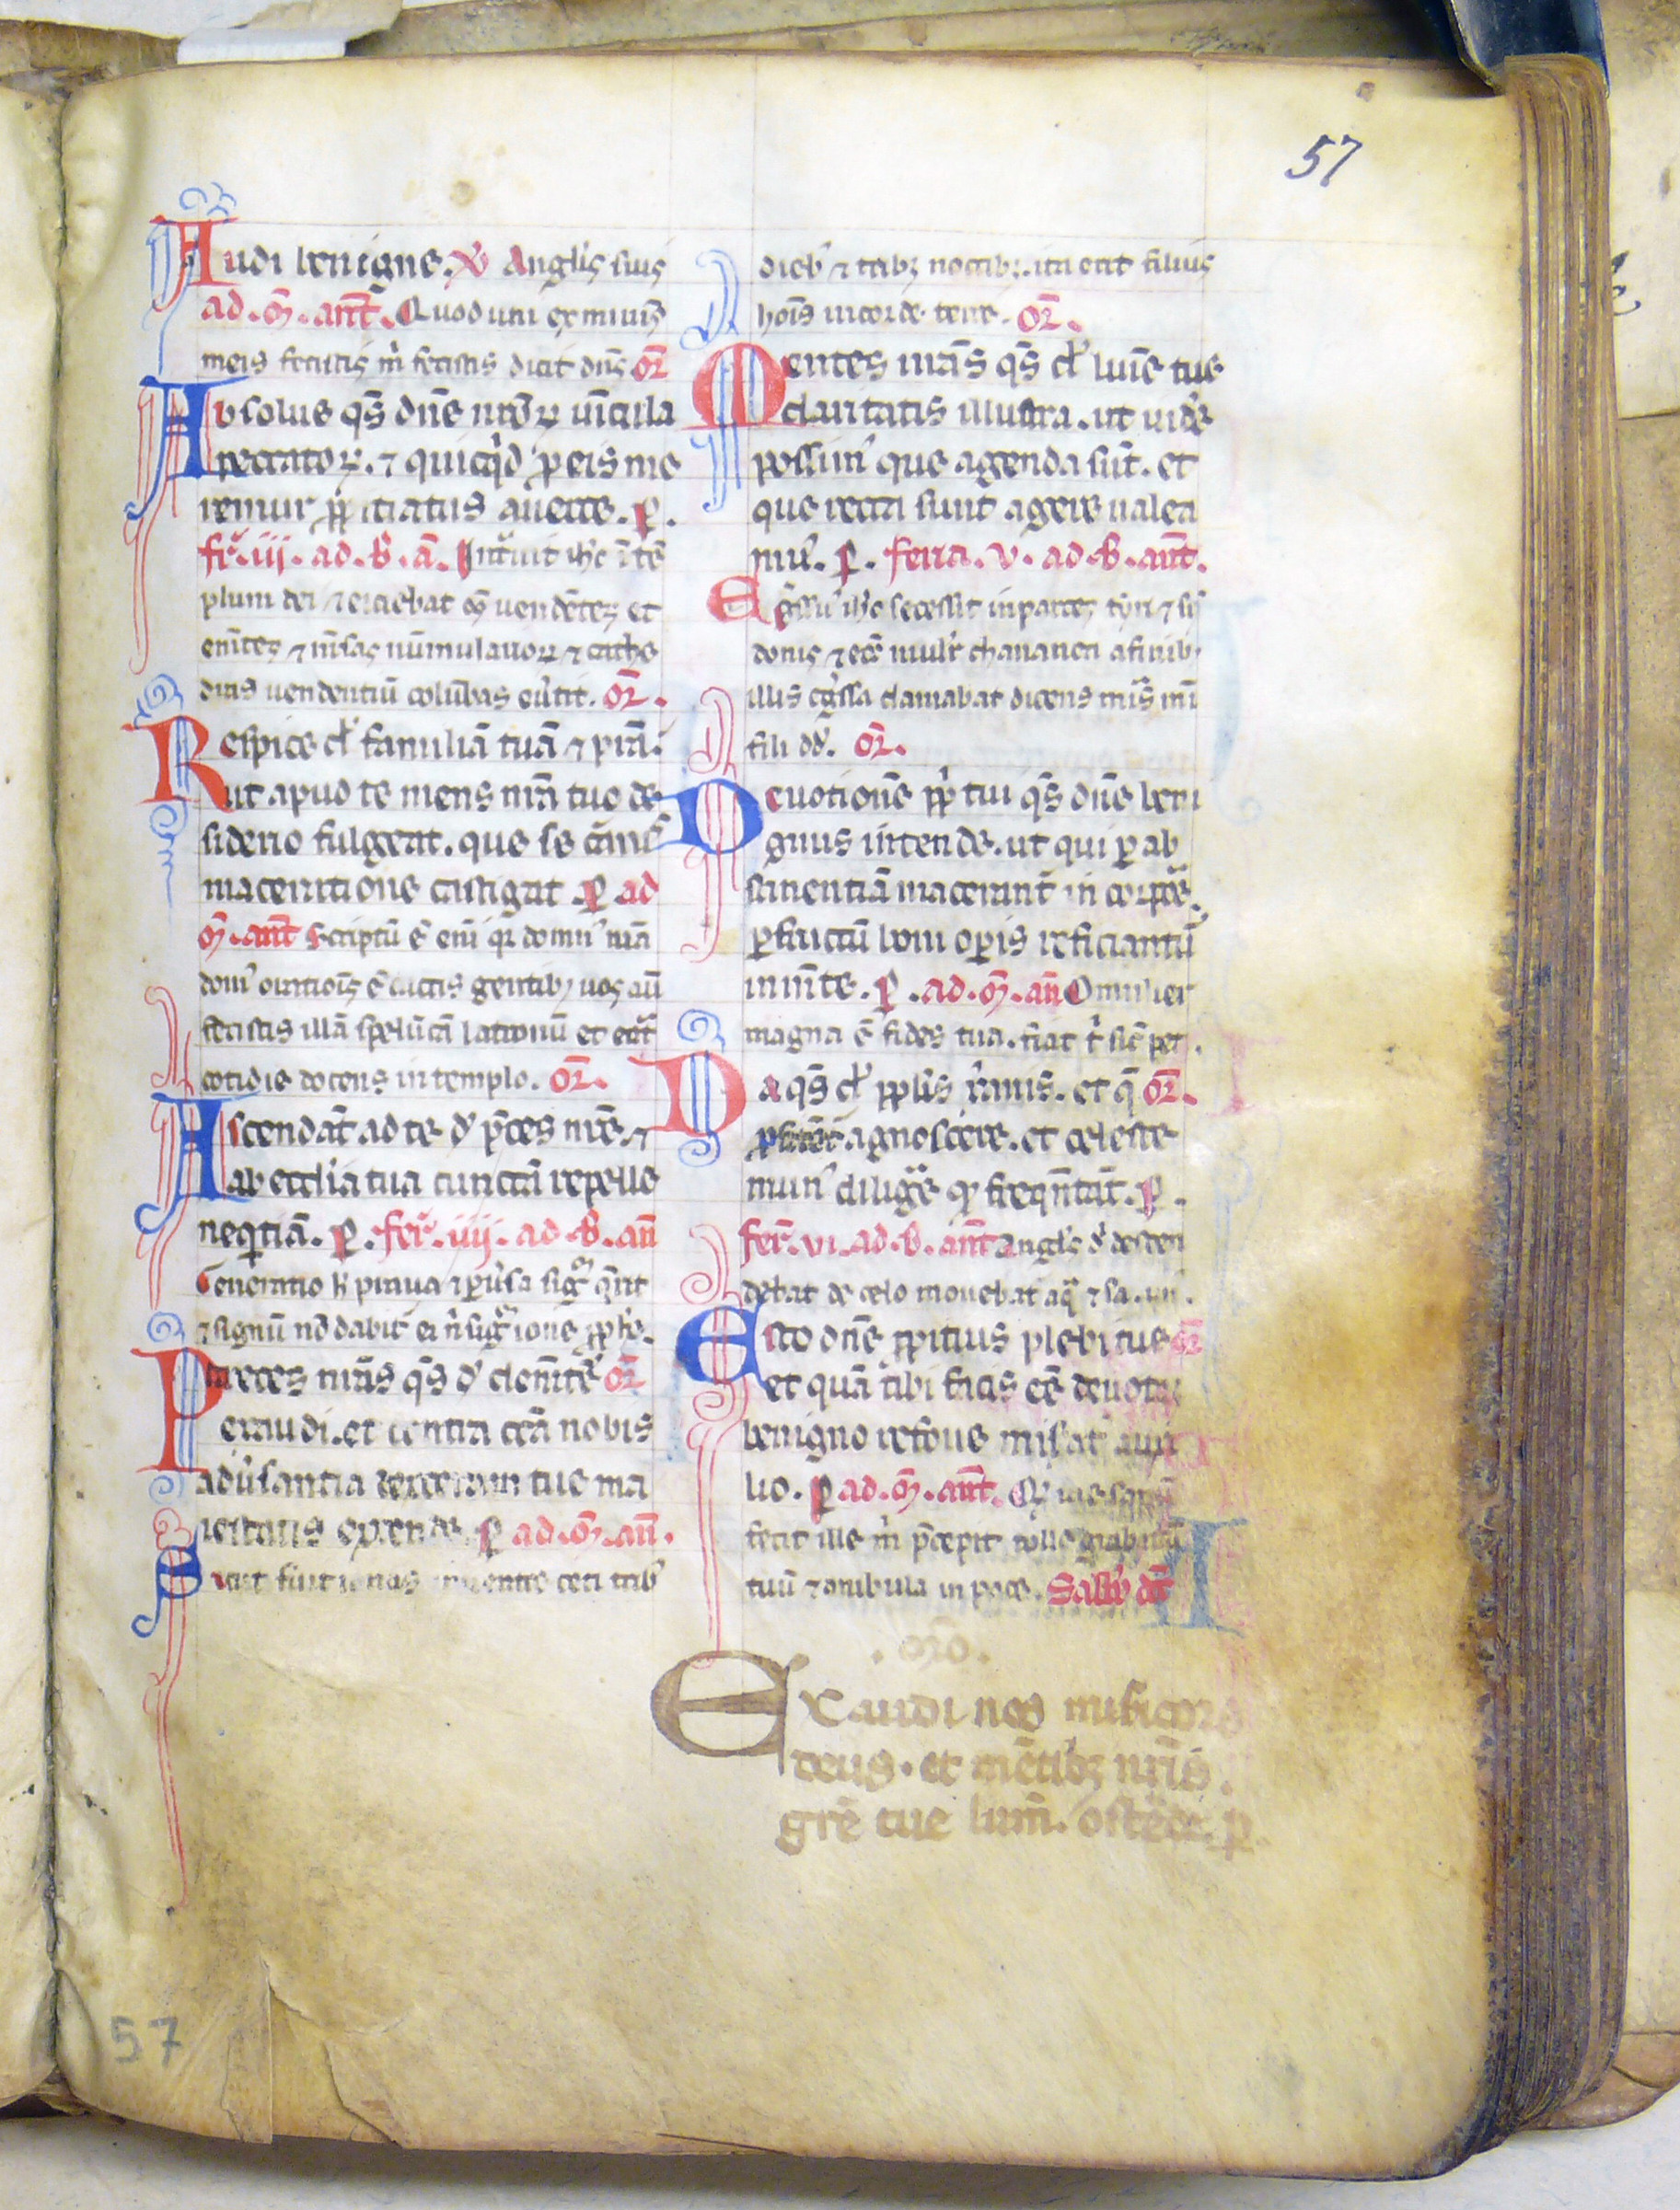 57
Audi benigne. V̄ Angľis suis
ad. m̄. ant̄. Quod uni ex minimꝫ
meis fecistis m̄ fecistis dicit dn̄s or̄
Absolue qs̄ dn̄e nr̄oꝝ uīcula
peccatoꝝ. ⁊ quicq̇d ꝓ eis me
remur ꝓpitiatus auerte. ꝑ.
fr̄. iij. ad. b̄. a̅. Intͣuit ih̄c ī tē
plum dei ⁊ eiciebat om̄ uendētes et
em̄tes ⁊ mēsas nūmulaꝛioꝝ ⁊ cathe
dras uendentiū colūbas eu̓tit. or̄.
Respice d̄s familiā tuā ⁊ p̄sta.
ut apud te mens nr̄a tuo de
siderio fulgeat. que se carnis
maceratione castigat. ꝑ ad
m̄. ant̄ Scriptū ē eni q̇ domus mā
dom᷒ orationis ē cūctis gentibꝫ uos aū
fecistis illā spelūcā latronū et erat
cotidie docens in templo. or̄.
Ascendāt ad te d̄s p̄ces nr̄e. ⁊
ab eccl̄ia tua cunctā repelle
neq̇tiā. ꝑ. fer̄. iiij. ad. b̄. an̄
Generatio h̄ praua ⁊ ꝑuersa sigͫ q̄rit
⁊ signū nō dabit᷑ ei n̄ sigͫ ione ꝓph̄e.
Preces nr̄as qs̄ d̄s clem̄tē or̄
exaudi. et contra cc̄ta nobis
adu̓santia dexteram tue ma
iestatis extende. ꝑ ad. m̄. an̄.
Sicut fuit ionas in uentre ceti trib᷒
dieb᷒ ⁊ tribꝫ noctibꝫ. ita erit filius
hoīs in corde terre. or̄.
Mentes nr̄as qs̄ d̄s lumīe tue
claritatis illustra. ut uidē
possim᷒ que agenda sūt. et
que recta sunt agere ualea
mus. ꝑ. feria. v. ad. b̄. ant̄.
Egssus ih̄c secessit in partes tyri ⁊ si
donis ⁊ ecce mulier chananea a finib᷒
illis eg̓ssa clamabat dicens mis̄ mī
fili dd̄. or̄.
Deuotionē ꝓpl̄i tui qs̄ dn̄e beni
gnus intende. ut qui ꝑ ab
stinentiā macerant᷑ in corpore.
ꝑ fructū boni operis reficiantur
in mēte. ꝑ. ad. m̄. an̄ O mulier
magna ē fides tua. fiat t̓ sic̄ pet.
Da qs̄ d̄s ꝓpl̄is x̄anis. et q̄ or̄.
ꝓfitent᷑ agnoscere. et celeste
mun᷒ diligere qd̄ freqn̄tāt. ꝑ.
fer̄. vi. ad. b̄. ant̄ Angl̄s d̄ descen
debat de celo mouebat᷑ aqͣ ⁊ sa. un.
Esto dn̄e ꝓpitius plebi tue or̄
et quā tibi facis eē deuotā
benigno refoue miserat᷒ auxi
lio. ꝑ ad. m̄. ant̄. Qui me sanū
fecit ille m̄ p̄cepit tolle grabatū
tuū ⁊ ambula in pace. Sabb̄o ant̄
. or̄o.
Exaudi nos misericors
deus. et mētibꝫ nr̄is.
gr̄e tue lum̄. ostēde. ꝑ
57